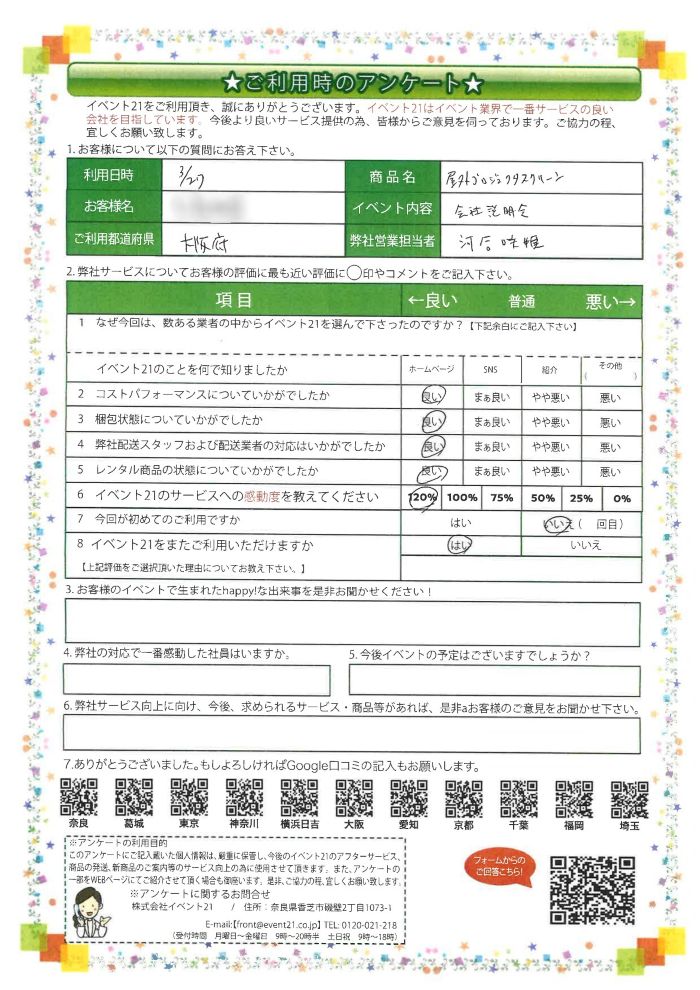 ★ご利用時のアンケート★
イベント21をご利用頂き、誠にありがとうございます。イベント21はイベント業界で一番サービスの良い
会社を目指しています。今後より良いサービス提供の為、皆様からご意見を伺っております。ご協力の程、
宜しくお願い致します。
1.お客様について以下の質問にお答え下さい。
利用日時 3/27 商品名 屋外プロジェクタスクリーン
お客様名 イベント内容 会社説明会
ご利用都道府県 大阪府 弊社営業担当者 河合
2.弊社サービスについてお客様の評価に最も近い評価に◯印やコメントをご記入下さい。
項目 ←良い 普通 悪い→
1 なぜ今回は、数ある業者の中からイベント21を選んで下さったのですか？【下記余白にご記入下さい】
イベント21のことを何で知りましたか ホームページ SNS 紹介 その他
( )
2 コストパフォーマンスについていかがでしたか 良い まぁ良い やや悪い 悪い
3 梱包状態についていかがでしたか 良い まぁ良い やや悪い 悪い
4 弊社配送スタッフおよび配送業者の対応はいかがでしたか 良い まぁ良い やや悪い 悪い
5 レンタル商品の状態についていかがでしたか 良い まぁ良い やや悪い 悪い
6 イベント21のサービスへの感動度を教えてください 120% 100% 75% 50% 25% 0%
7 今回が初めてのご利用ですか はい いいえ( 回目)
8 イベント21をまたご利用いただけますか はい いいえ
【上記評価をご選択頂いた理由についてお教え下さい。】
3.お客様のイベントで生まれたhappy!な出来事を是非お聞かせください！
4.弊社の対応で一番感動した社員はいますか。 5.今後イベントの予定はございますでしょうか？
6.弊社サービス向上に向け、今後、求められるサービス・商品等があれば、是非aお客様のご意見をお聞かせ下さい。
7.ありがとうございました。もしよろしければGoogle口コミの記入もお願いします。
奈良 葛城 東京 神奈川 横浜日吉 大阪 愛知 京都 千葉 福岡 埼玉
※アンケートの利用目的
このアンケートにご記入戴いた個人情報は、厳重に保管し、今後のイベント21のアフターサービス、
商品の発送、新商品のご案内等のサービス向上の為に使用させて頂きます。また、アンケートの
一部をWEBページにてご紹介させて頂く場合も御座います。是非、ご協力の程、宜しくお願い致します。
※アンケートに関するお問合せ
株式会社イベント21 / 住所：奈良県香芝市磯壁2丁目1073-1
E-mail:【front@event21.co.jp】 TEL: 0120-021-218
(受付時間 月曜日～金曜日 9時～20時半 土日祝 9時～18時)
フォームからの
ご回答こちら！